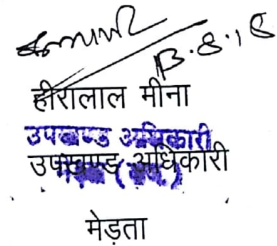 13.8.18
हीरालाल मीना
उपखण्ड अधिकारी
उपखण्ड अधिकारी
मेड़ता